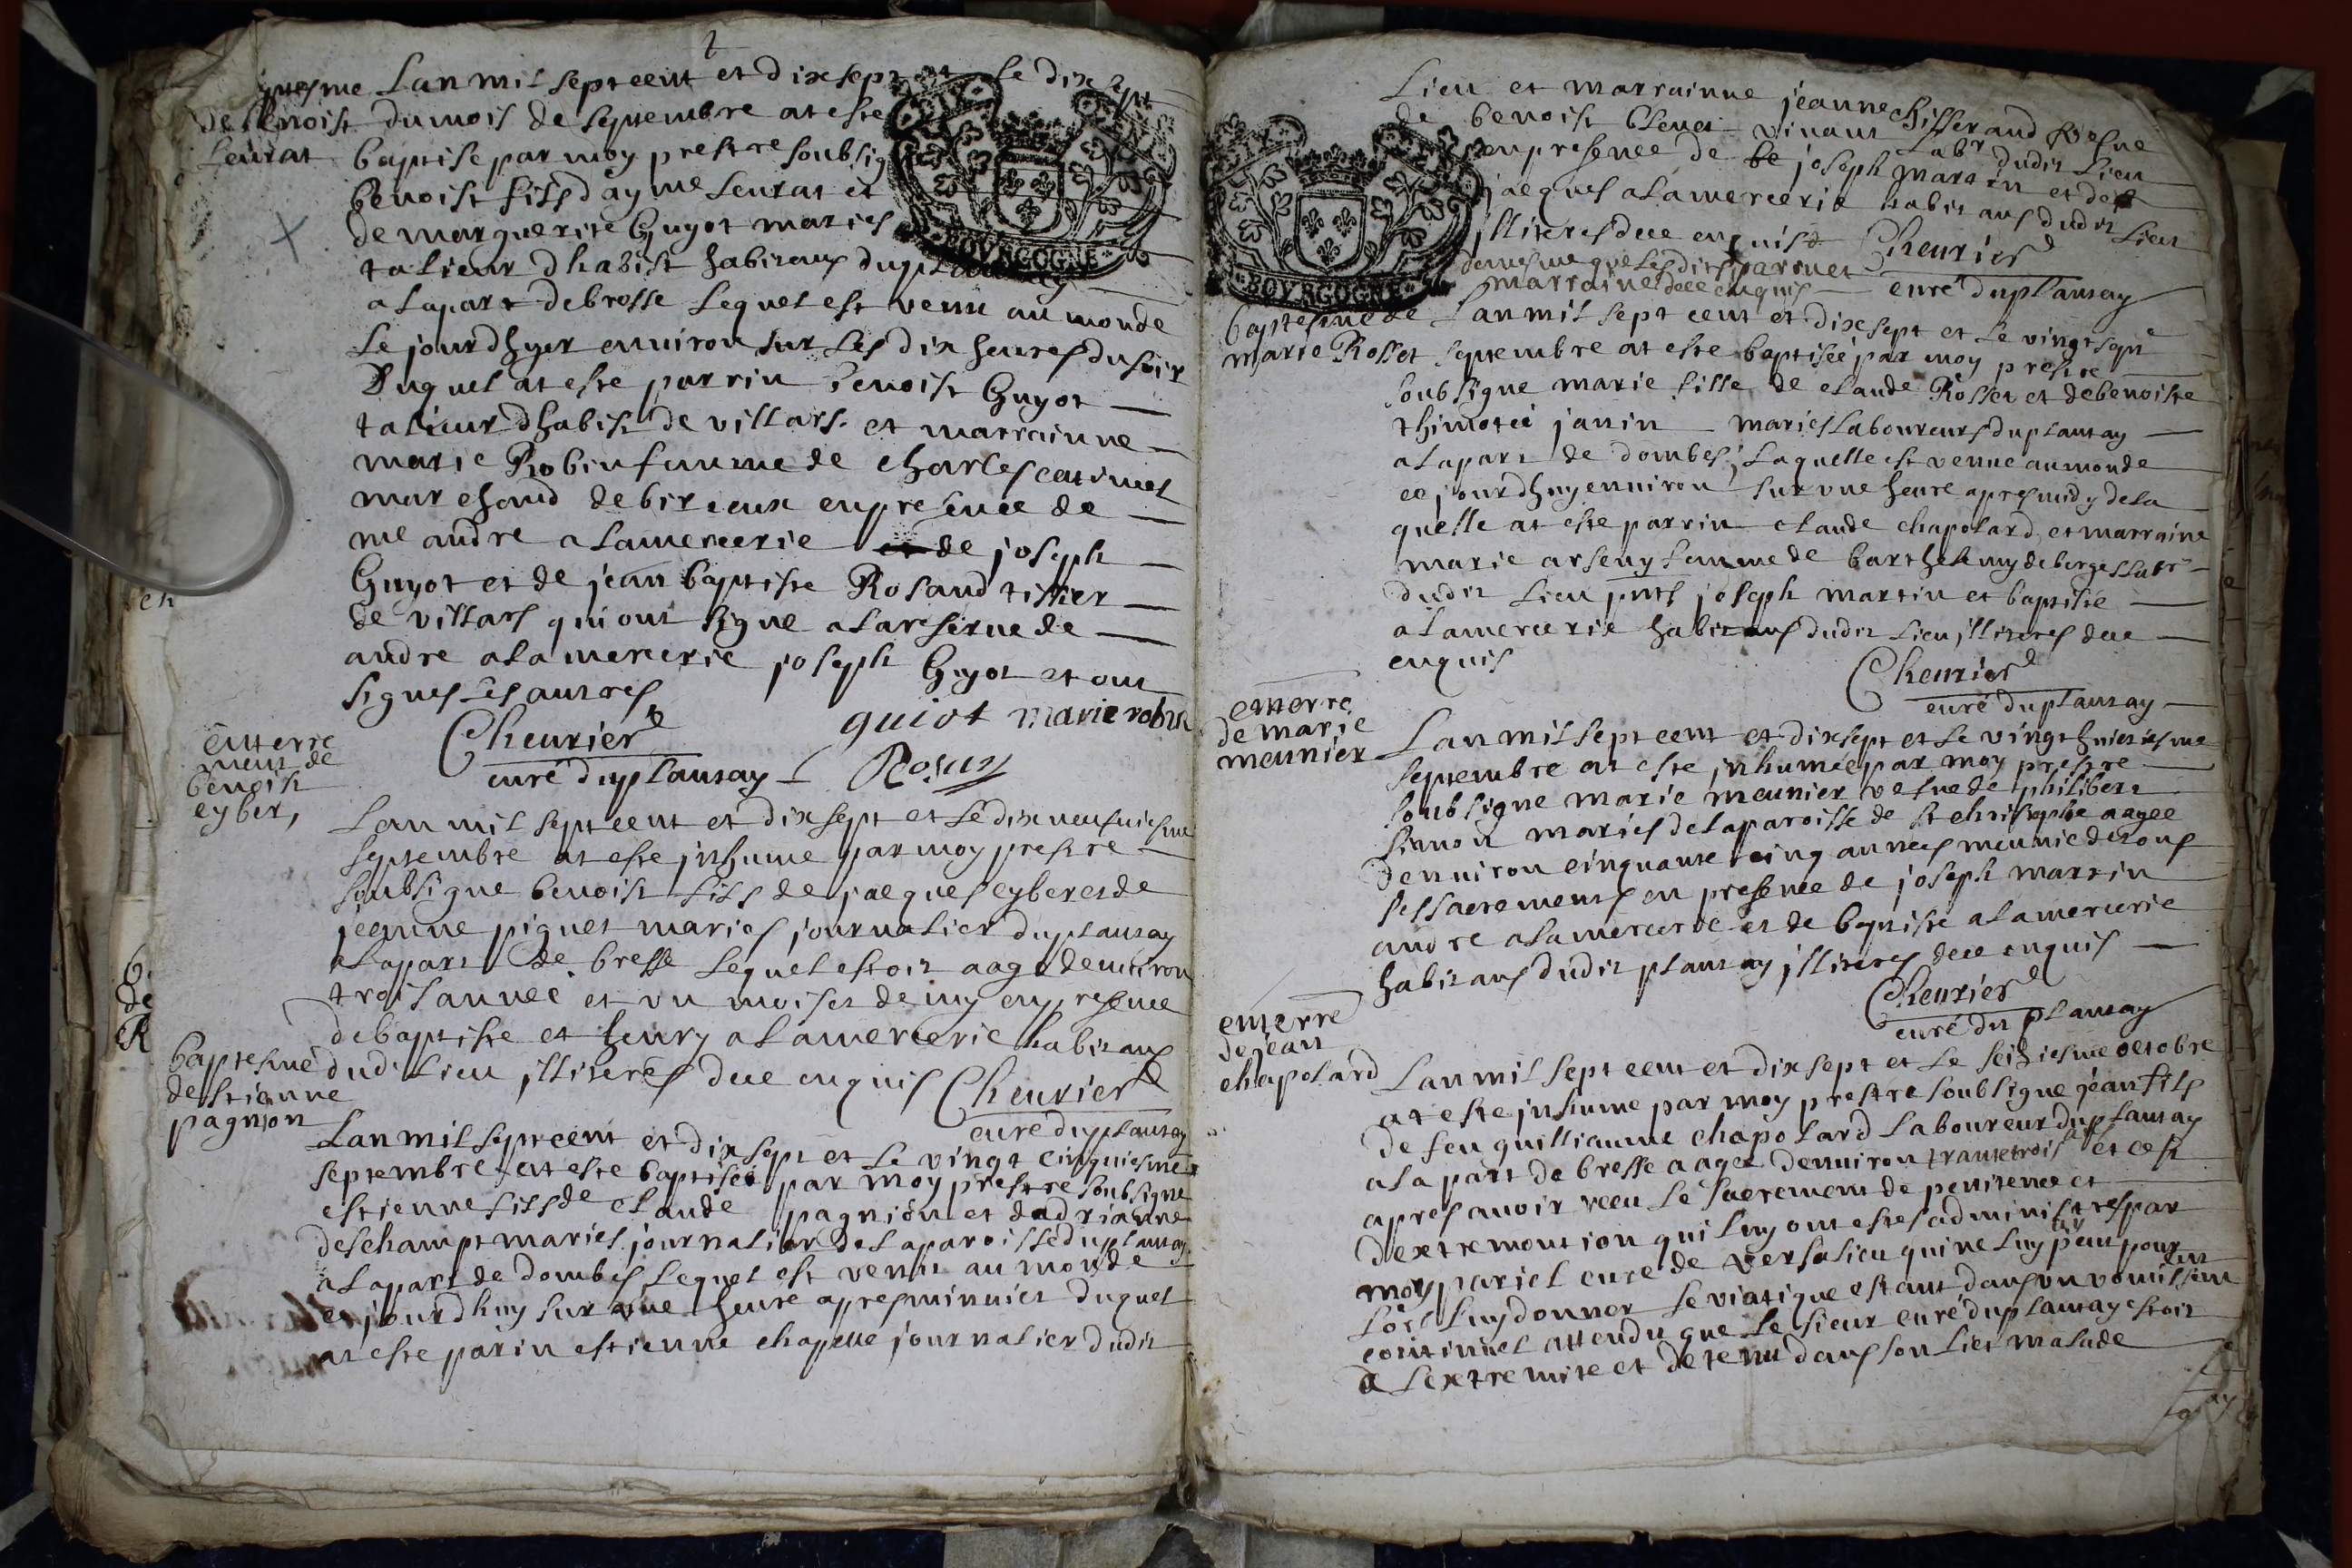 Lan mil sept cent et dix sept et le dix sept
de benoist du mois de septembre at este
Leurat baptise par moy prestre soubsig
benoist fils dayme Leurat et
de marguerite Guyot maries
talieur dhabist habitans du
a la part de bresse lequel est venu au monde
le jour dhyer environ sur les dix heures du soir
Duquel at este parrin benoist Guyot
talieur dhabist de villars et marrainne
marie Robin femme de charles
marchand de birieux en presence de
me andre alamercerie de joseph
Guyot et de jean baptiste Roland tissier
de villars qui ont signe a la reserve de
andre alamercerie joseph Guyot et ont
signes les autres
Cheurier
guiot marie robin
curé du plantay
enterre
ment de
benoist
eyber,
Lan mil sept cent et dix sept et le dix neufuiesme
septembre at este jnhume par moy prestre
soubsigne benoist fils de jacques eyber et de
jeanne piquet maries journalier du plantay
a la part de bresse lequel estoit aage denuiron
trois année et un mois et demy en presence
de baptiste et henry alamercerie habitans
dudit Lieu jlliteres dece enquis Cheurier
curé du plantay
baptesme
destienne
pagnion
Lan mil sept cent et dix sept et le vingt cinquiesme
septembre at este baptisé par moy prestre soubsigne
estienne fils de claude pagnion et dadrianne
deschamps maries journalier de la paroisse du plantay
a la part de dombes lequel est venu au monde
ce jourdhuy sur une heure apres minuict duquel
at este parin estienne chapelle journalier dudit
Lieu et marrainne jeanne chifferand vesue
de benoist Clenet vivant Labr dudit Lieu
en presence de joseph martin et de
jacques alamercerie habitans dudit Lieu
jlliteres dece enquis
de mesme que lesdits parin et
marraine dece enquis
Cheurier
curé du plantay
BOVRGOGNE
BOVRGOGNE
baptesme de
marie Rosset
Lan mil sept cent et dix sept et le vingt sept
septembre at este baptisée par moy prestre
soubsigne marie fille de claude Rosset et de benoiste
thimoteé janin maries laboureurs du plantay
a la part de dombes, laquelle est venue au monde
ce jourdhuy enuiron sur une heure apres midy de la
quelle at este parrin claude chapolard et marraine
marie arseny femme de barthelemy deborges Labr
dudit Lieu pnts joseph martin et baptiste
alamercerie habitans dudit Lieu jlliteres dece
enquis
Cheurier
curé du plantay
enterre
de marie
meunier
Lan mil sept cent et dix sept et le vingt huictiesme
septembre at este jnhumée par moy prestre
soubsigne marie meunier vesue de philibert
simon maries de la paroisse de st christophe aagee
denuiron cinquante cinq annees meunie de tous
les sacrements en presence de joseph martin
andre alamercerie et de baptiste alamercerie
habitans dudit plantay jlliteres dece enquis
Cheurier
curé du plantay
enterre
de jean
chapolard
Lan mil sept cent et dix sept et le seiziesme octobre
at este jnhume par moy prestre soubsigne jean fils
de feu guillianme chapolard laboureur du plantay
a la part de bresse aaget denuiron trante trois et ce st
apres auoir receu le sacrement de penitence et
dextremontion qui luy ont estes administres par
moy pariet cure de versalieu qui ne luy peut pour
lors luy donner le viatique estant dans un vomissement
continuel attendu que le sieur curé du plantay estoit
a lextremite et detenu dans son lict malade